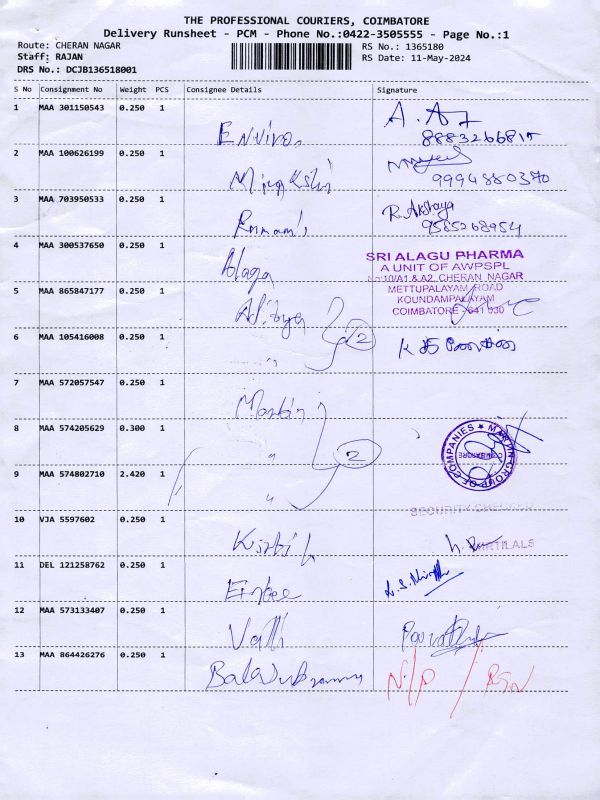 THE PROFESSIONAL COURIERS, COIMBATORE
Delivery Runsheet - PCM - Phone No.:0422-3505555 - Page No.:1
Route: CHERAN NAGAR
RS No.: 1365180
Staff: RAJAN
RS Date: 11-May-2024
DRS No.: DCJB136518001
S No Consignment No Weight PCS Consignee Details Signature
1 MAA 301150543 0.250 1 Enviro.
8883266815
2 MAA 100626199 0.250 1
9994880370
3 MAA 703950533 0.250 1 R. Akshaya
9585268954
4 MAA 300537650 0.250 1 Alaga
SRI ALAGU PHARMA
A UNIT OF AWPSPL
No:10/A1 & A2, CHERAN NAGAR
METTUPALAYAM ROAD
KOUNDAMPALAYAM
COIMBATORE - 641 030
5 MAA 865847177 0.250 1 Aditya
6 MAA 105416008 0.250 1 2
7 MAA 572057547 0.250 1 Martin
8 MAA 574205629 0.300 1 " 2
MARTIN GROUP OF COMPANIES
COIMBATORE
9 MAA 574802710 2.420 1 "
SECURITY CHECKED
10 VJA 5597602 0.250 1
11 DEL 121258762 0.250 1
12 MAA 573133407 0.250 1 Valli
13 MAA 864426276 0.250 1 N/D